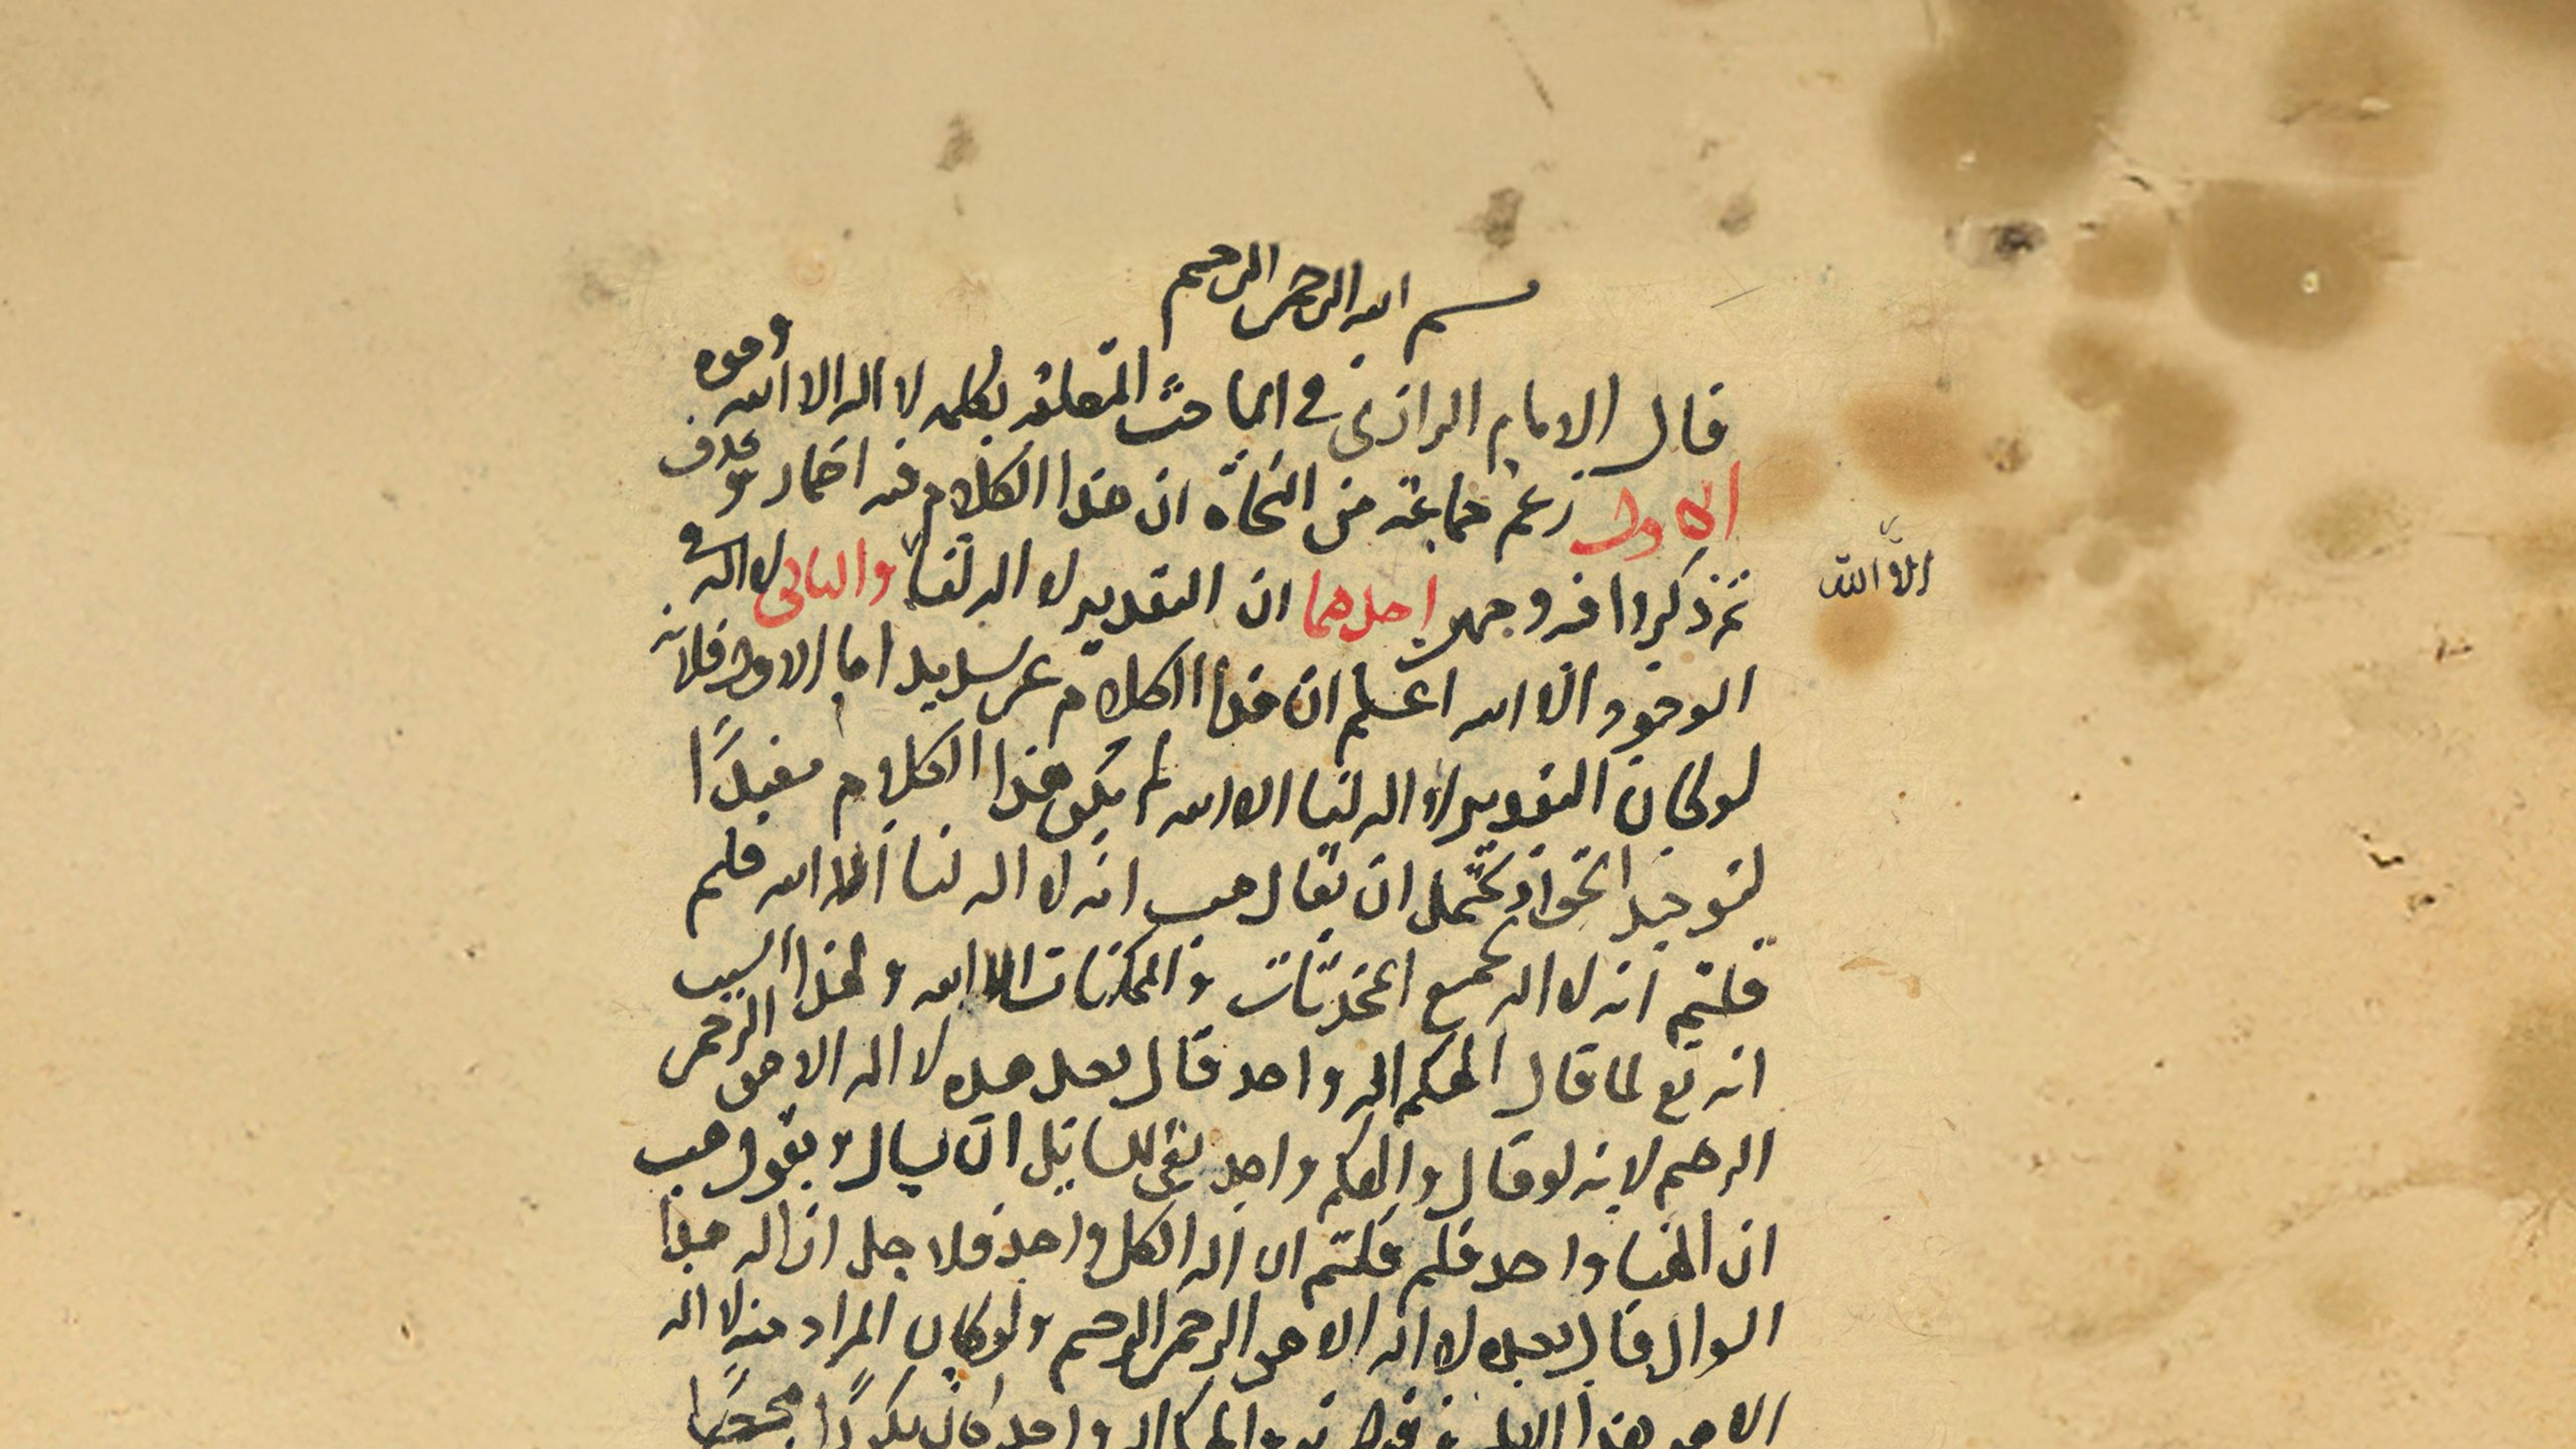 بسم الله الرحمن الرحيم
قال الامام الرازى في المباحث المتعلقه بكلمه لا اله الا الله وجوه
الاول زعم جماعة من النحاة ان هذا الكلام فيه اضمار وحذف
ثم ذكروا فيه وجهين احدهما ان التقدير لا اله لنا والثانى لا اله في
الا الله
الوجود الا الله اعلم ان هذا الكلام غير سديد اما الاول فلانه
لو كان التقدير لا اله لنا الا الله لم يكن هذا الكلام مفيدًا
لتوحيد الحق اذ يحتمل ان يقال هب انه لا اله لنا الا الله فلم
قلتم انه لا اله لجميع المحدثات والممكنات الا الله ولهذا السبب
انه تع لما قال الهكم اله واحد قال بعده لا اله الا هو الرحمن
الرحيم لانه لو قال والهكم واحد بقى للسايل ان يسال ويقول هب
ان الهنا واحد فلم قلتم ان اله الكل واحد فلاجل ازاله هذا
السوال قال بعده لا اله الا هو الرحمن الرحيم ولو كان المراد منه لا اله
الا هو هذا واحد كان